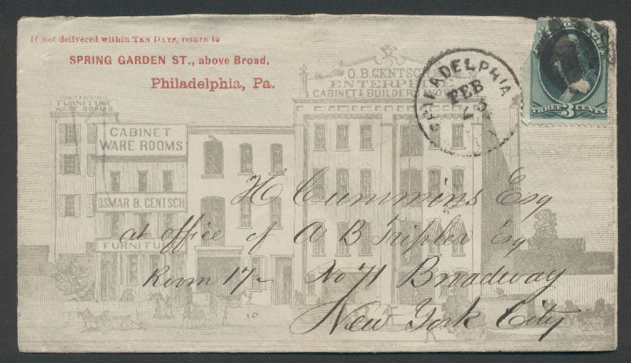 If not delivered within TEN DAYS, return to
SPRING GARDEN ST., above Broad,
Philadelphia, Pa.
O.B. GENTSCH
ENTERPRISE
CABINET & BUILDERS
FURNITURE
WARE ROOMS
CABINET
WARE ROOMS
OSMAR B. GENTSCH
FURNITURE
PHILADELPHIA
FEB
23
THREE 3 CENTS
H Cummins Esq
at office of A B Tripler Esq
Room 17 - No 71 Broadway
New York City